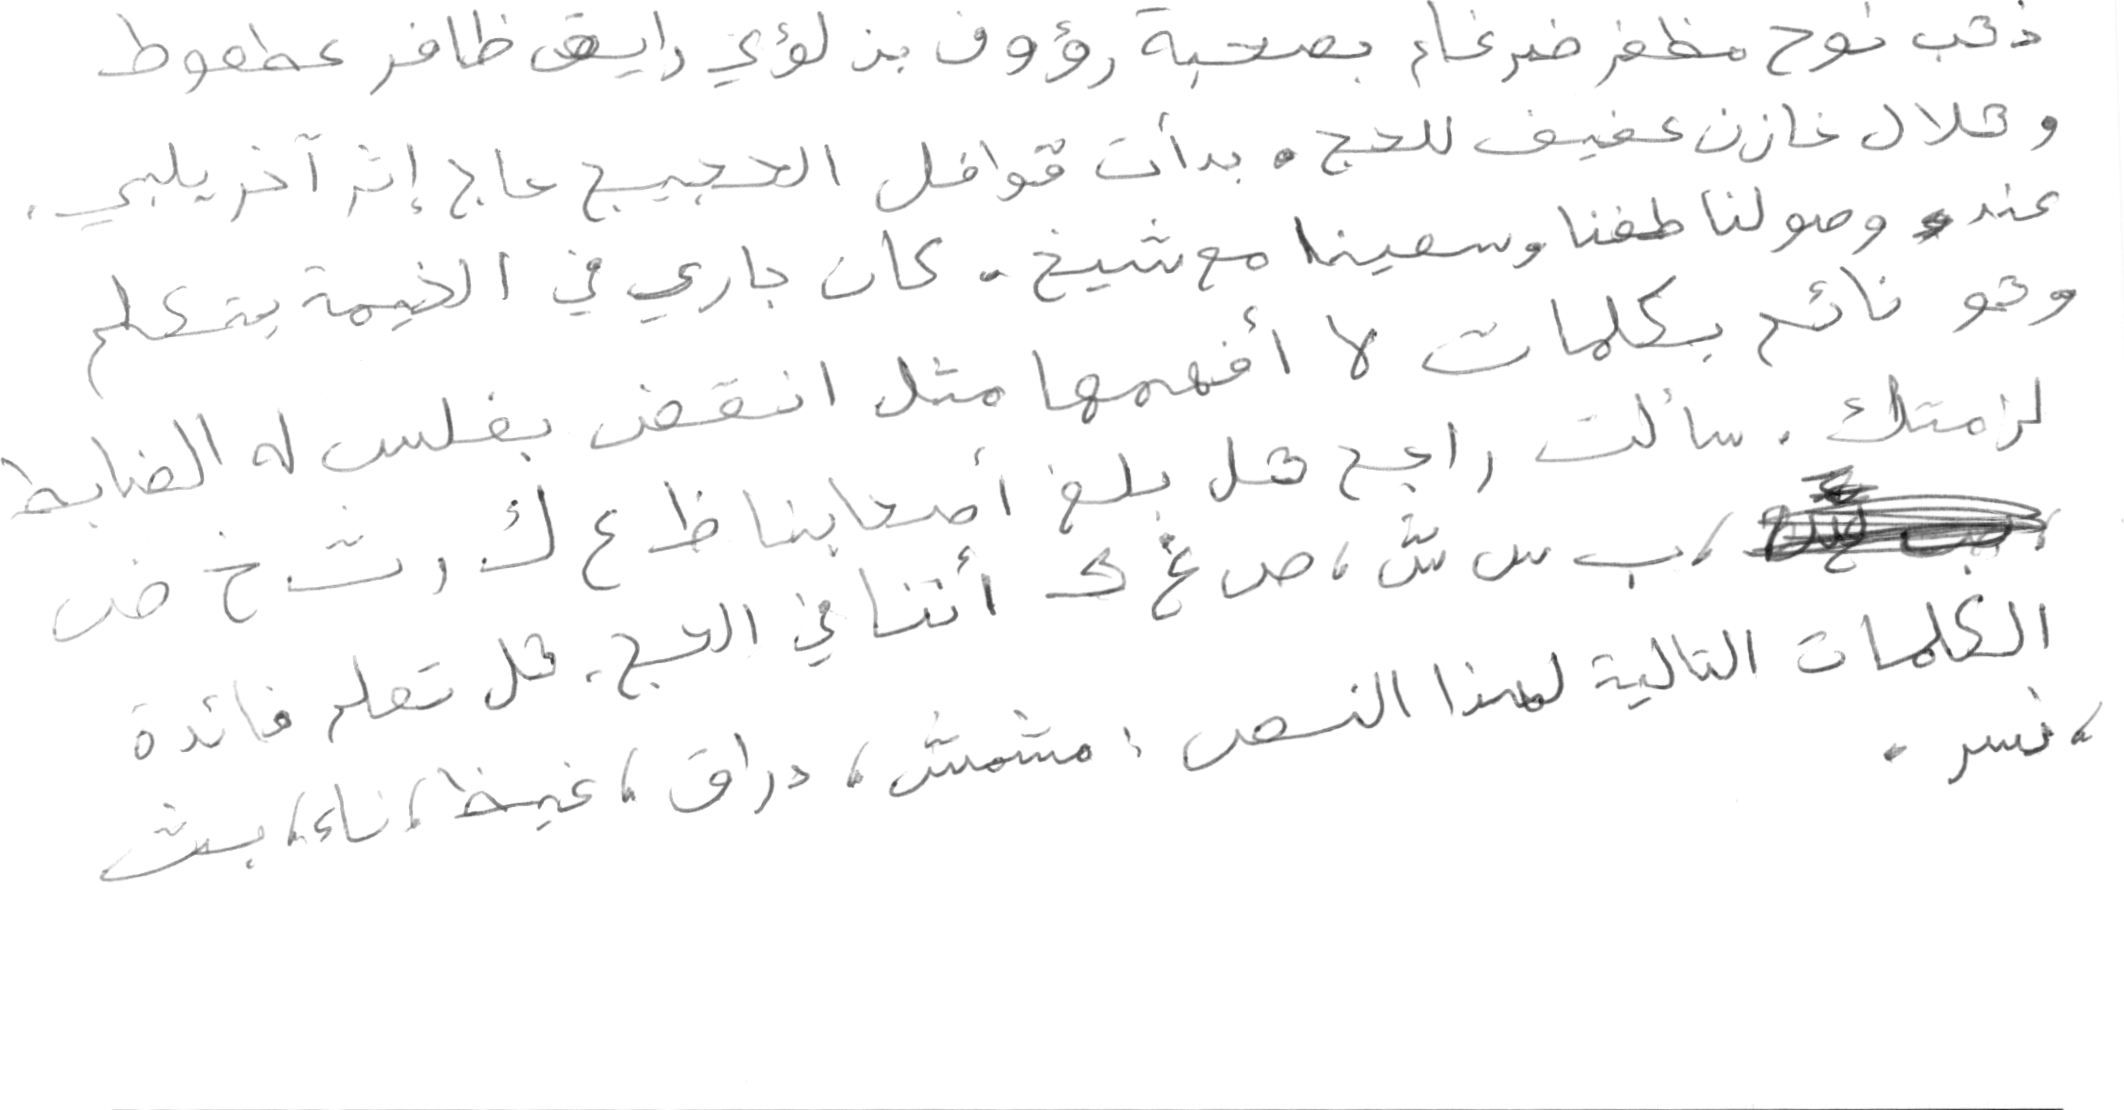 ذهب نوح مظفر ضرغام بصحبة رؤوف بن لؤي رايق ظافر عطعوط
وهلال خازن عفيف للحج . بدأت قوافل الحجيج حاج إثر آخر يلبي .
عند وصولنا طفنا وسعينا مع شيخ . كان جاري في الخيمة يتكلم
وهو نائم بكلمات لا أفهمها مثل انقض بغلس له الضابط
لزمتك . سألت راجح هل بلغ أصحابنا ظ ع ك ر ث خ ض
، ب س ش ، ص غ ك أننا في الحج . هل تعلم فائدة
الكلمات التالية لهذا النص : مشمش ، دراق ، غيظ ، ناء ، بث
، نسر .